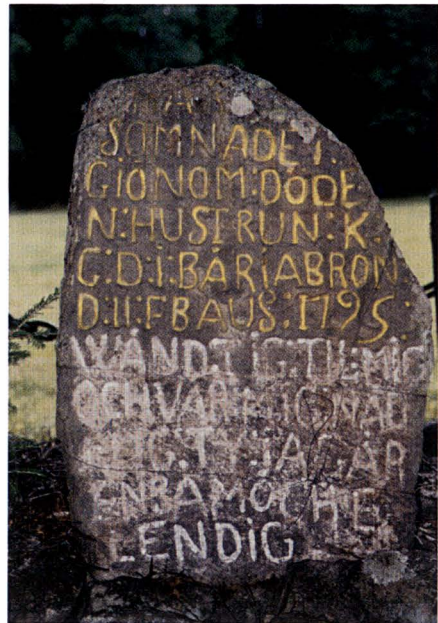 SOMNADE I.
GIÖNOM:DÖDE
N:HUSTRUN:K.
G:D:I:BÅRIABRON
D:II:FBAUS:1795:
WÄND:TIG:TIL:MIG
OCH
TY JAGÄR
ENSAMOCHE
LENDIG